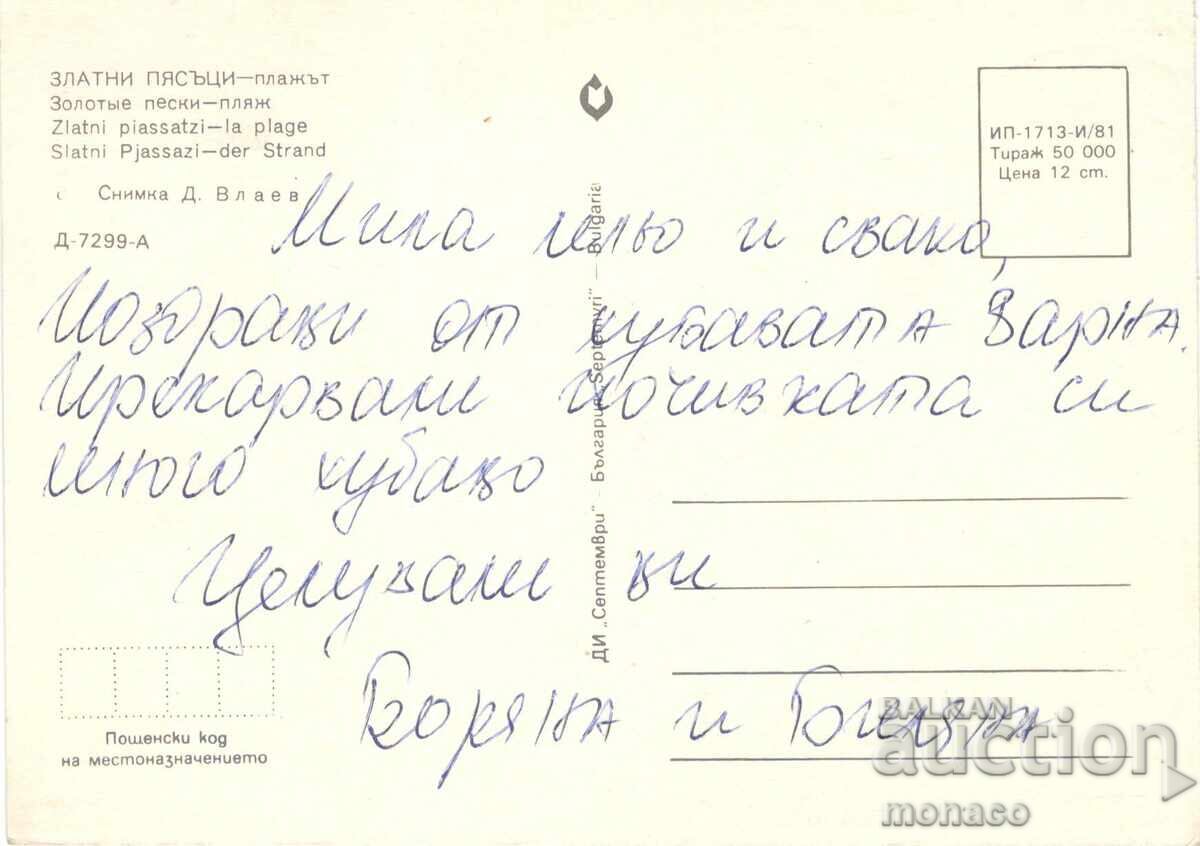 ЗЛАТНИ ПЯСЪЦИ—плажът
Золотые пески—пляж
Zlatni piassatzi—la plage
Slatni Pjassazi—der Strand
Снимка Д. Влаев
Д-7299-А
ИП-1713-И/81
Тираж 50 000
Цена 12 ст.
Мила лельо и свако,
Поздрави от хубавата Варна.
Прекарвам почивката си
много хубаво
Целувам ви
Боряна и Биляна.
ДИ „Септември" - България „Septemvri" — Bulgaria
Пощенски код
на местоназначението
BALKAN
auction
monaco